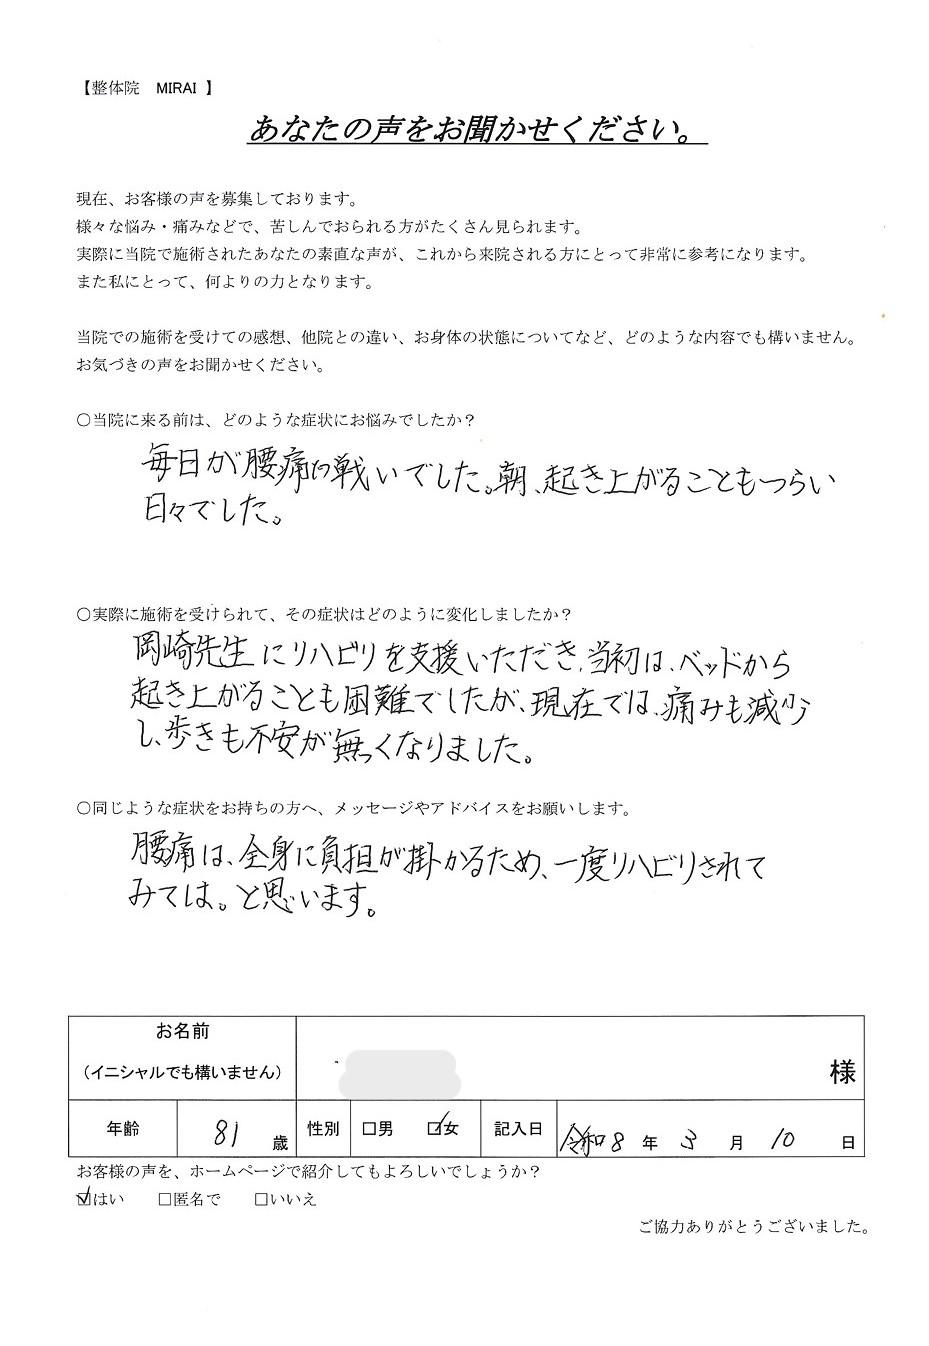 【整体院　MIRAI 】
あなたの声をお聞かせください。
現在、お客様の声を募集しております。
様々な悩み・痛みなどで、苦しんでおられる方がたくさん見られます。
実際に当院で施術されたあなたの素直な声が、これから来院される方にとって非常に参考になります。
また私にとって、何よりの力となります。
当院での施術を受けての感想、他院との違い、お身体の状態についてなど、どのような内容でも構いません。
お気づきの声をお聞かせください。
〇当院に来る前は、どのような症状にお悩みでしたか？
毎日が腰痛の戦いでした。朝、起き上がることもつらい
日々でした。
〇実際に施術を受けられて、その症状はどのように変化しましたか？
岡崎先生にリハビリを支援いただき、当初は、ベッドから
起き上がることも困難でしたが、現在では、痛みも減少
し、歩きも不安が無くなりました。
〇同じような症状をお持ちの方へ、メッセージやアドバイスをお願いします。
腰痛は、全身に負担が掛かるため、一度リハビリされて
みては。と思います。
お名前
（イニシャルでも構いません）
様
年齢 81 歳 性別 □男 ☑女 記入日 令和 8 年 3 月 10 日
お客様の声を、ホームページで紹介してもよろしいでしょうか？
☑はい　□匿名で　□いいえ
ご協力ありがとうございました。